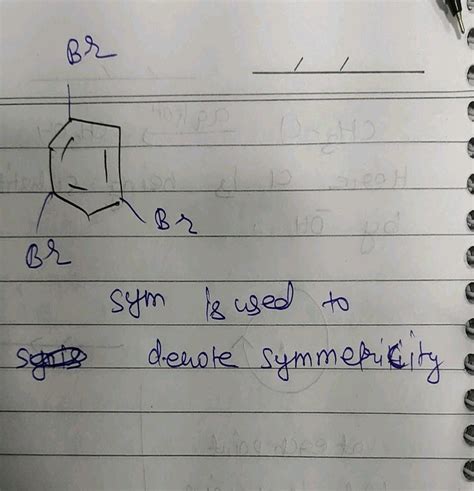 Br
Br
Br
sym is used to
denote symmetricity